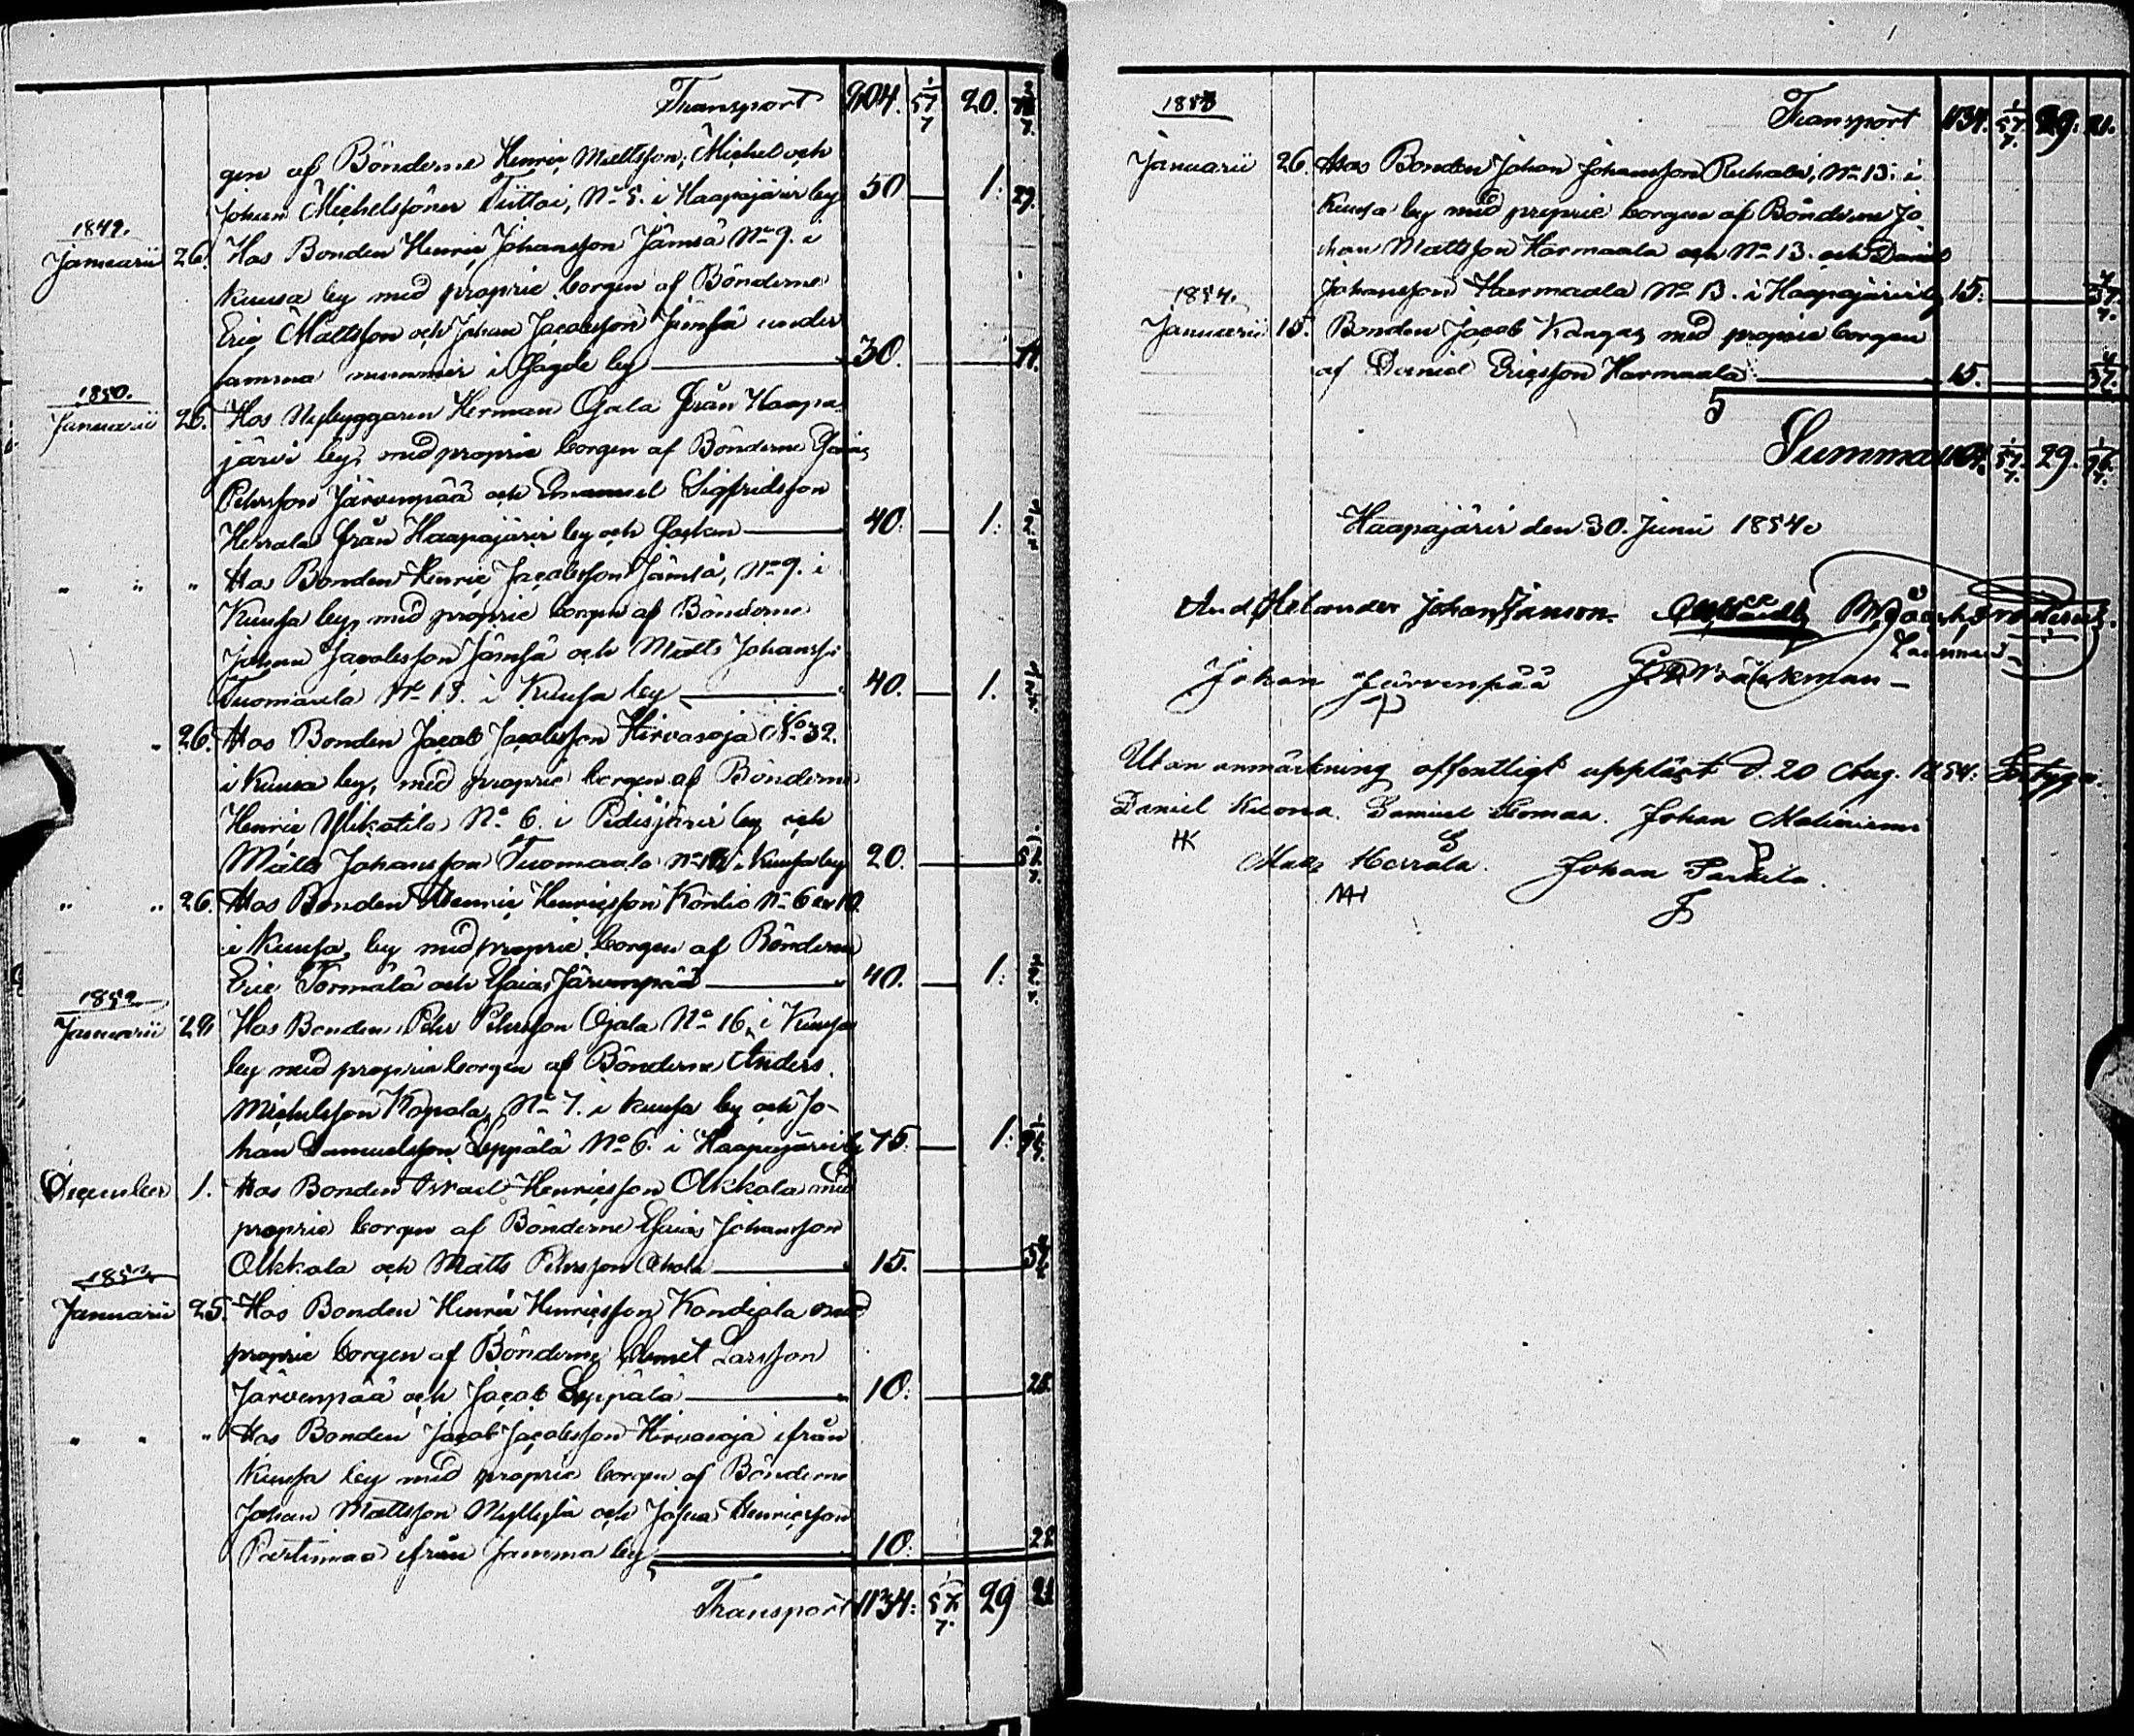 Transport 904. 57 1/7 20.
gen af Bönderne Henric Mattsson, Michel och
Johan Michelssöner Tiittoi, No 5. i Haapajärvi by 50 — 1: 29.
1849.
Januarii 26. Hos Bonden Henric Johansson Jämsä No 9. i
Kuusa by med proprie borgen af Bönderne
Eric Mattsson och Johan Jacobsson Jämsä under
samma nummer i sagde by — 30.
1850.
Januarii 26. Hos Nybyggaren Herman Ojala från Haapa-
järvi by, med proprie borgen af Bönderne Esaias
Pehrsson Järvenpää och Emanuel Sigfridsson
Herrala från Haapajärvi by och Socken — 40. — 1:
" " " Hos Bonden Henric Jacobsson Jämsä, No 9. i
Kuusa by, med proprie borgen af Bönderne
Johan Jacobsson Jämsä och Matts Johansson
Tuomaala No 18. i Kuusa by — 40. — 1.
" " 26. Hos Bonden Jacob Jacobsson Hirvasoja No 32.
i Kuusa by, med proprie borgen af Bönderne
Henric Ylikatila No 6. i Pidisjärvi by och
Matts Johansson Tuomaala No i Kuusa by 20. —
" " 26. Hos Bonden Henric Henricsson Köntiö No 6 ex 10.
i Kuusa by med proprie borgen af Bönderne
Eric Törmälä och Esaias Järvenpää — 40. — 1:
1852
Januarii 29 Hos Bonden Pehr Pehrsson Ojala No 16. i Kuusa
by med proprie borgen af Bönderne Anders
Michelsson Kopola, No 7. i Kuusa by och Jo-
han Samuelsson Leppälä No 6. i Haapajärvi by 75. — 1:
December 1. Hos Bonden Israel Henricsson Olkkola med
proprie borgen af Bönderne Esaias Johansson
Olkkola och Matts Pehrsson Ahola — 15.
1853
Januarii 25. Hos Bonden Henric Henricsson Kandiala med
proprie borgen af Bönderne Clemet Larsson
Järvenpää och Jacob Leppälä — 10: 28.
" " " Hos Bonden Jacob Jacobsson Hirvasoja ifrån
Kuusa by med proprie borgen af Bönderne
Johan Mattsson Myllylä och Josua Henricsson
Partimaa ifrån samma by — 10: 28
Transport 1134: 57 1/7. 29 21
1853 Transport 1134. 57 1/7. 29: 21.
Januarii 26. Hos Bonden Johan Johansson Ruhala, No 13. i
Kuusa by med proprie borgen af Bönderne Jo-
han Mattsson Harmaala och No 13. och Daniel
Johansson Harmaala No 13. i Haapajärvi by 15:
1854.
Januarii 15. Bonden Jacob Kangas med proprie borgen
af Daniel Ericsson Harmaala — 15.
Summa 57 1/7. 29.
Haapajärvi den 30. Junii 1854.
And Helander Johan Janson.
Johan Järvenpää Bäckman
Utan anmärkning offentligt uppläst d. 20 Aug. 1854: Betyga:
Daniel Kuona. Samuel Homaa. Johan Maliniemi
HK
Matts Herrala. Johan
MH